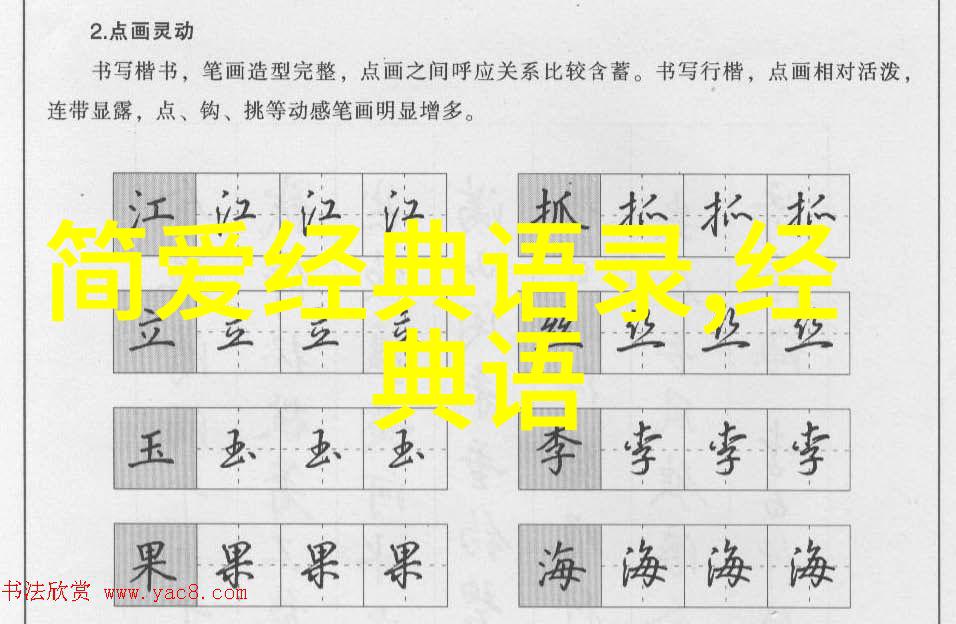 2.点画灵动
书写楷书，笔画造型完整，点画之间呼应关系比较含蓄。书写行楷，点画相对活泼，
连带显露，点、钩、挑等动感笔画明显增多。
江 江 江 江 抓 抓 抓 抓
简爱经典语录,经
典语
立 立 立 立 丝 丝 丝 丝
玉 玉 玉 玉 李 李 李 李
果 果 果 果 海 海 海 海
书法欣赏 www.yac8.com